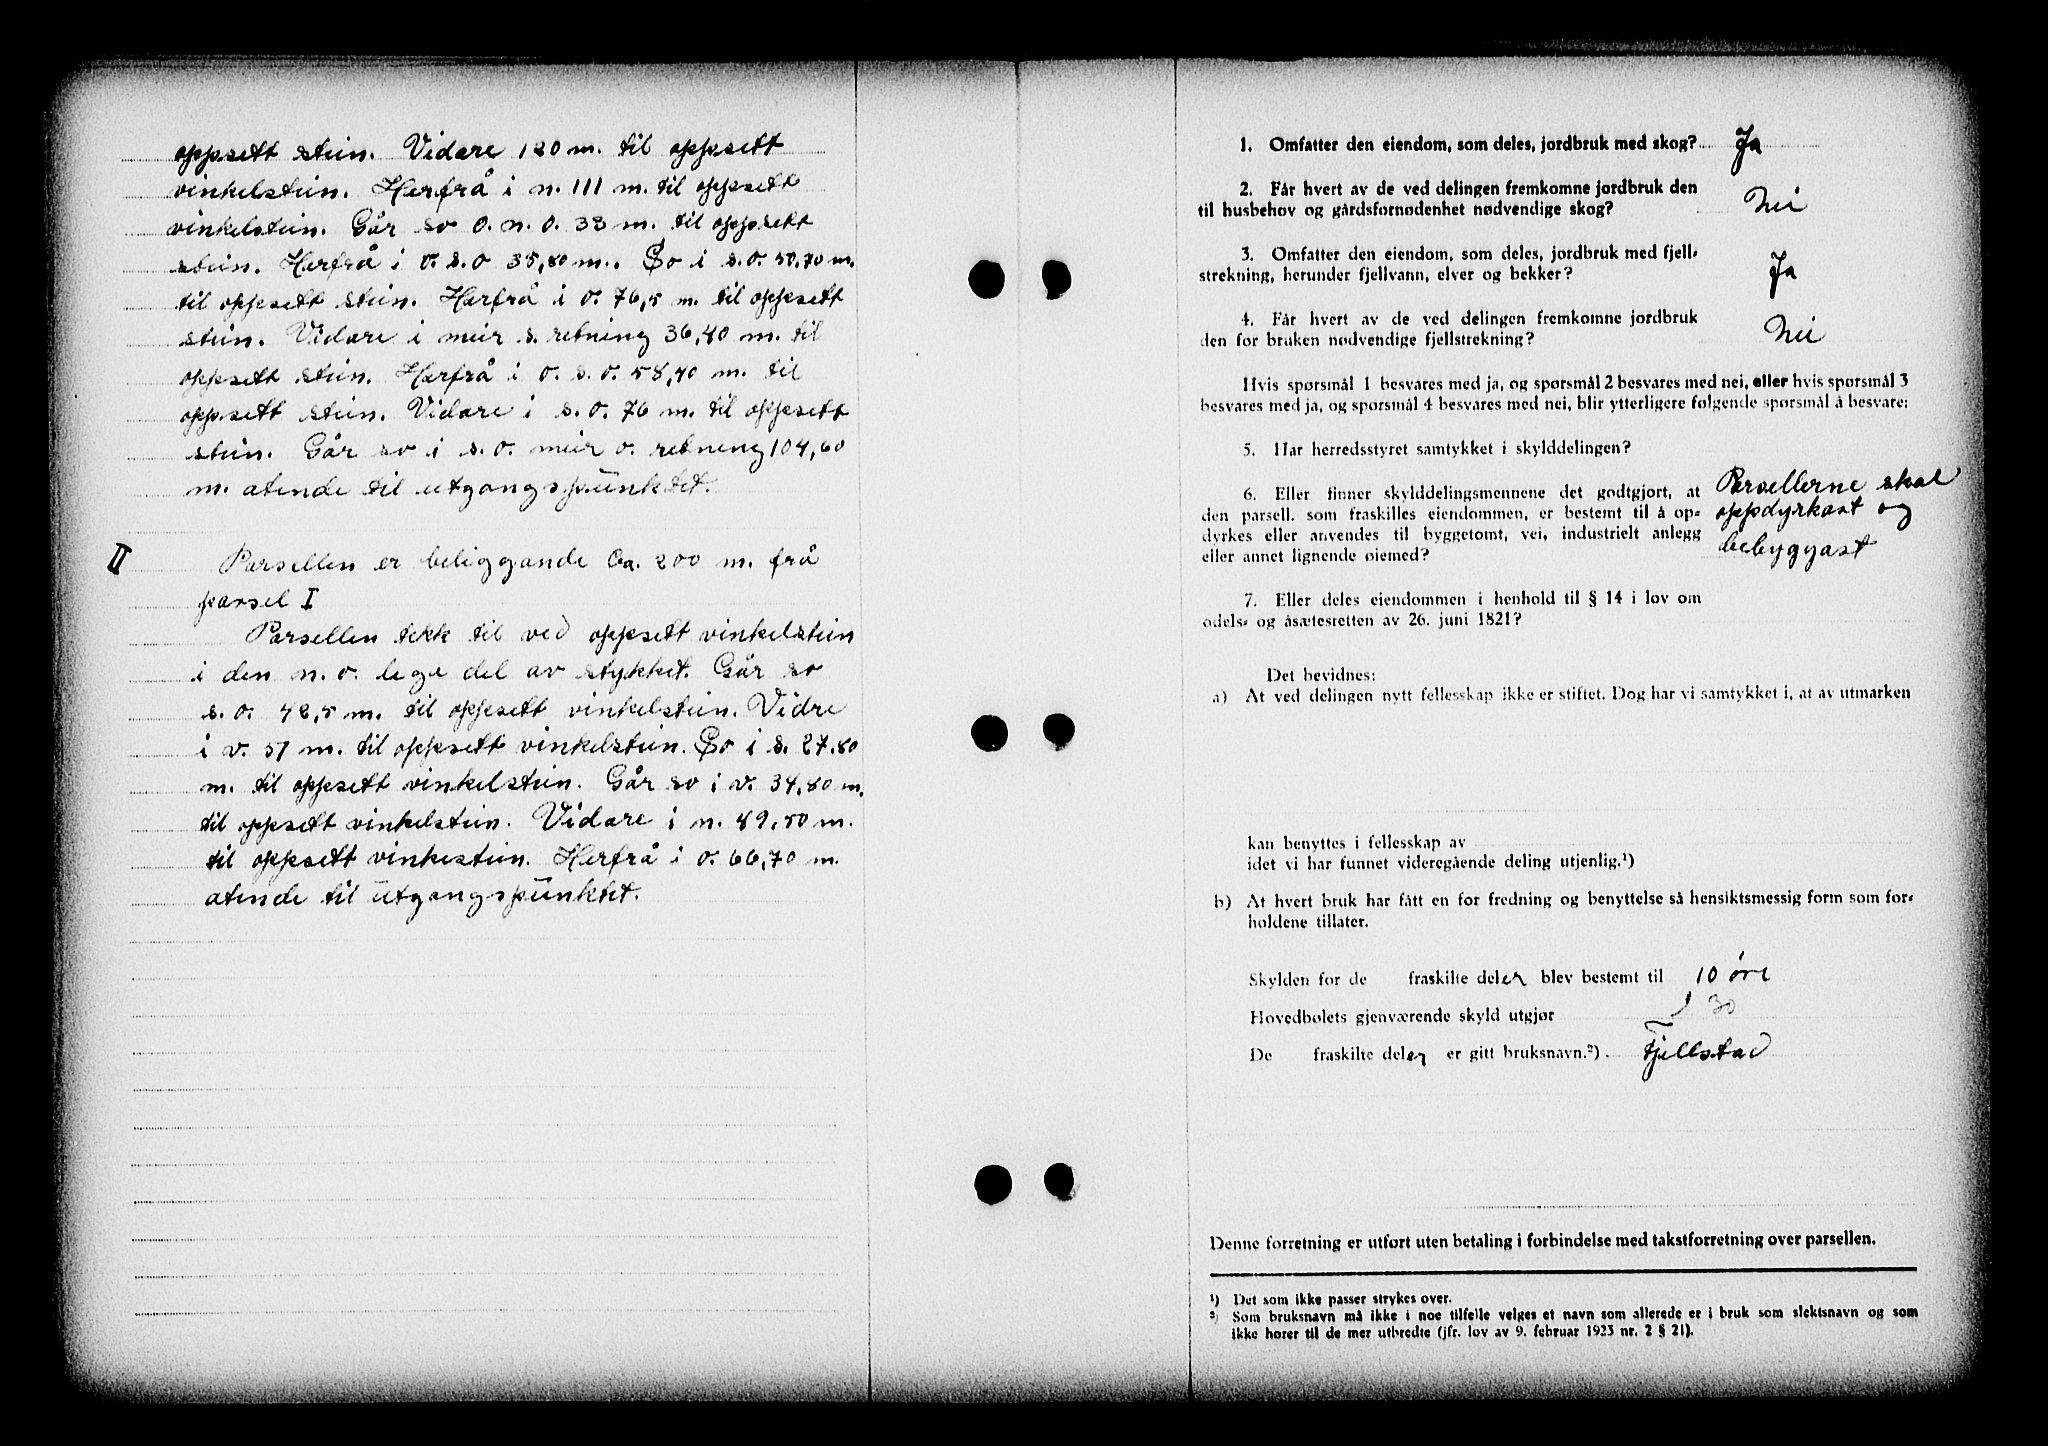 oppsett stein. Vidare 120 m. til oppsett
vinkelstein. Herfrå i n. 111 m. til oppsett
vinkelstein. Går so o. n. o. 33 m. til oppsett
stein. Herfrå i o. s. o 35,80 m. So i s. o. 50,70 m.
til oppsett stein. Herfrå i o. 76,5 m. til oppsett
stein. Vidare i meir s. retning 36,40 m. til
oppsett stein. Herfrå i o. s. o. 58,40 m. til
oppsett stein. Vidare i s. o. 76 m. til oppsett
stein. Går so i s. o. meir o. retning 104,60
m. atende til utgangspunktet.
II Parsellen er beliggande Ca. 200 m. frå
parsel I
Parsellen tekk til ved oppsett vinkelstein
i den n. o. lege del av stykket. Går so
s. o. 42,5 m. til oppsett vinkelstein. Vidre
i v. 57 m. til oppsett vinkelstein. So i s. 27,80
m. til oppsett vinkelstein. Går so i v. 34,80 m.
til oppsett vinkelstein. Vidare i n. 89,50 m.
til oppsett vinkestein. Herfrå i o. 66,70 m.
atende til utgangspunktet.
1. Omfatter den eiendom, som deles, jordbruk med skog? Ja
2. Får hvert av de ved delingen fremkomne jordbruk den
til husbehov og gårdsfornødenhet nødvendige skog? Nei
3. Omfatter den eiendom, som deles, jordbruk med fjell-
strekning, herunder fjellvann, elver og bekker? Ja
4. Får hvert av de ved delingen fremkomne jordbruk
den for bruken nødvendige fjellstrekning? Nei
Hvis spørsmål 1 besvares med ja, og spørsmål 2 besvares med nei, eller hvis spørsmål 3
besvares med ja, og spørsmål 4 besvares med nei, blir ytterligere følgende spørsmål å besvare:
5. Har herredsstyret samtykket i skylddelingen?
6. Eller finner skylddelingsmennene det godtgjort, at
den parsell. som fraskilles eiendommen, er bestemt til å op-
dyrkes eller anvendes til byggetomt, vei, industrielt anlegg
eller annet lignende øiemed?
Parsellerne skal
oppdyrkast og
bebyggast
7. Eller deles eiendommen i henhold til § 14 i lov om
odels- og åsætesretten av 26. juni 1821?
Det bevidnes:
a) At ved delingen nytt fellesskap ikke er stiftet. Dog har vi samtykket i, at av utmarken
kan benyttes i fellesskap av
idet vi har funnet videregående deling utjenlig.¹)
b) At hvert bruk har fått en for fredning og benyttelse så hensiktsmessig form som for-
holdene tillater.
Skylden for de fraskilte deler blev bestemt til 10 øre
Hovedbølets gjenværende skyld utgjør 30
De fraskilte deler er gitt bruksnavn.²) Fjellstad
Denne forretning er utført uten betaling i forbindelse med takstforretning over parsellen.
¹) Det som ikke passer strykes over.
²) Som bruksnavn må ikke i noe tilfelle velges et navn som allerede er i bruk som slektsnavn og som
ikke hører til de mer utbredte (jfr. lov av 9. februar 1923 nr. 2 § 21).